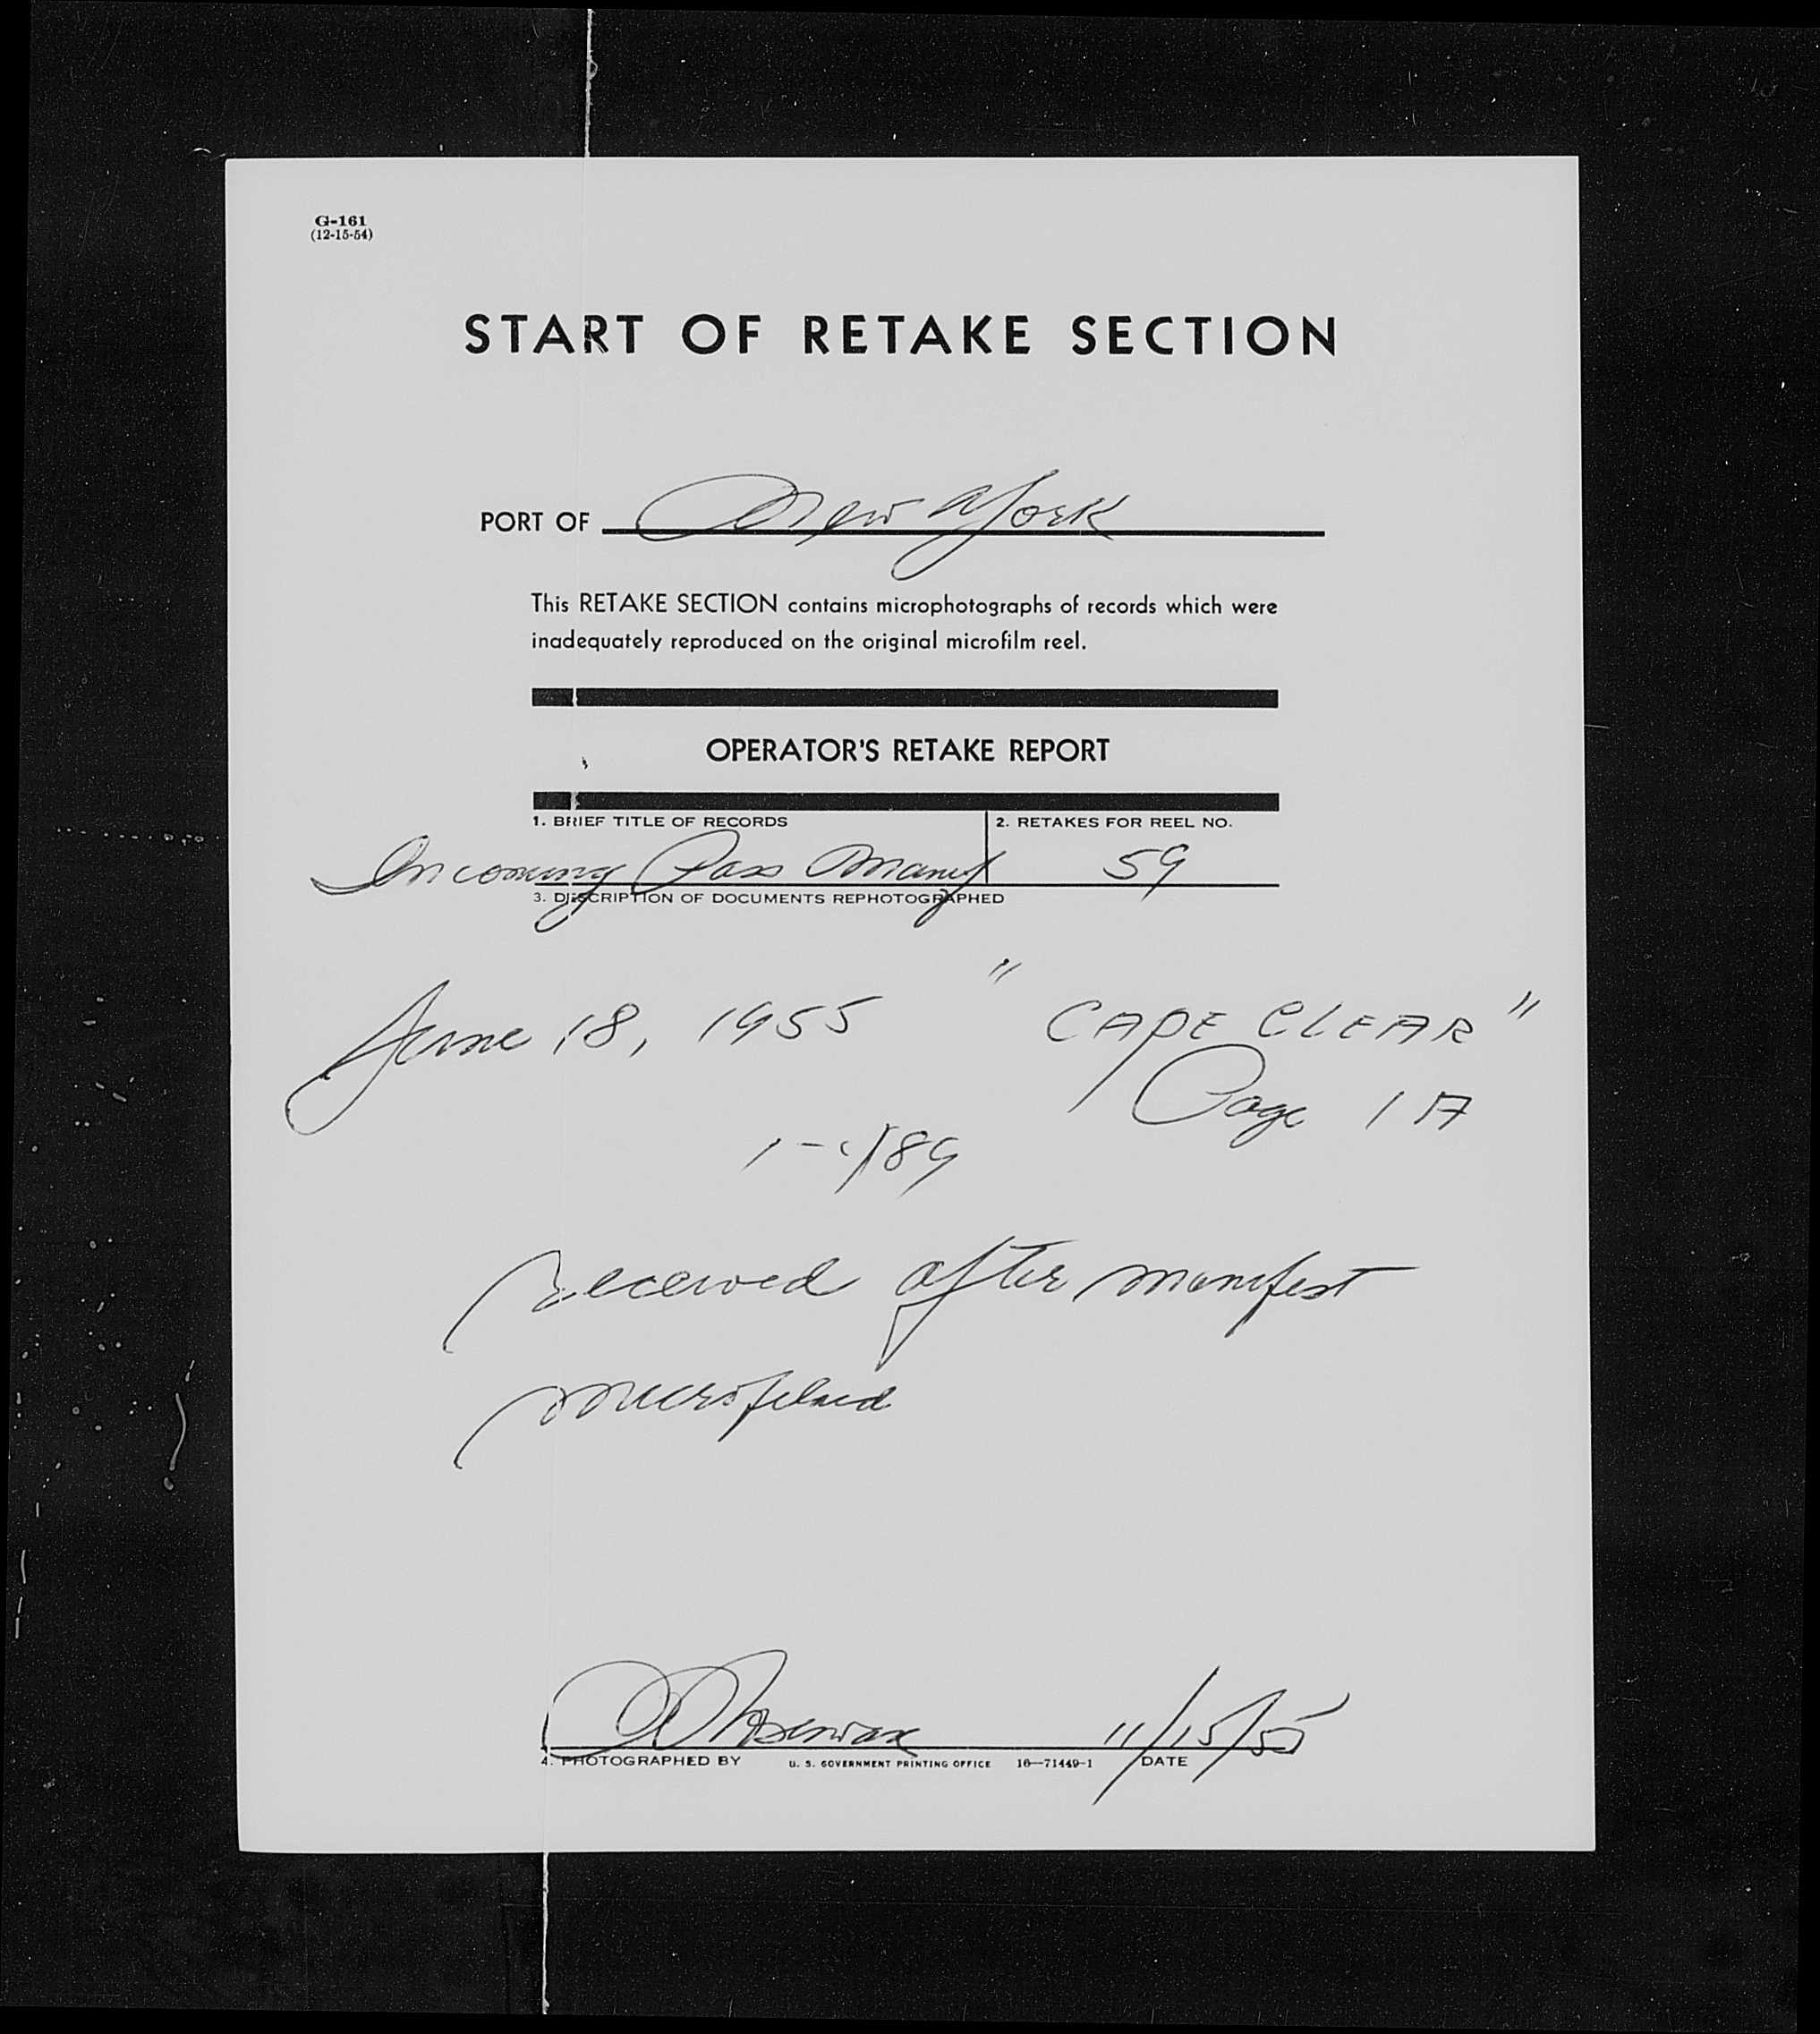 G-161
(12-15-54)
START OF RETAKE SECTION
PORT OF New York
This RETAKE SECTION contains microphotographs of records which were
inadequately reproduced on the original microfilm reel.
OPERATOR'S RETAKE REPORT
1. BRIEF TITLE OF RECORDS 2. RETAKES FOR REEL NO.
Incoming Pass Manif 59
3. DESCRIPTION OF DOCUMENTS REPHOTOGRAPHED
June 18, 1955 "CAPE CLEAR"
Page 1A
received after manifest
microfilmed
11/15/55
4. PHOTOGRAPHED BY U. S. GOVERNMENT PRINTING OFFICE 16—71449-1 DATE